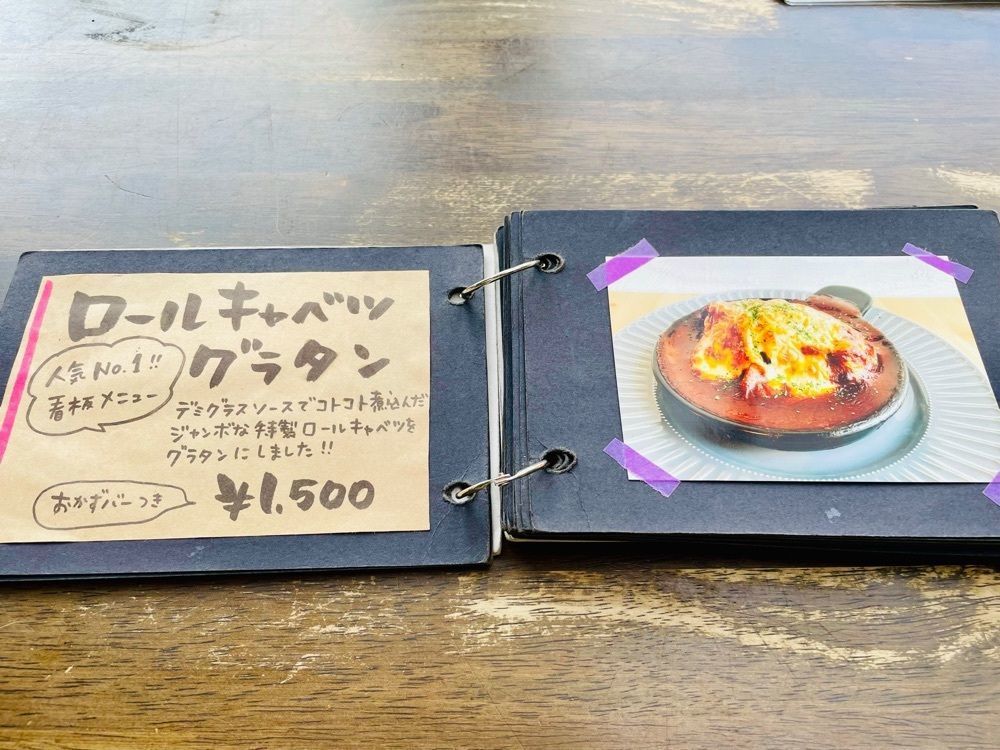 ロールキャベツ
グラタン
人気No.1!!
看板メニュー
デミグラスソースでコトコト煮込んだ
ジャンボな特製ロールキャベツを
グラタンにしました!!
おかずバーつき
¥1.500